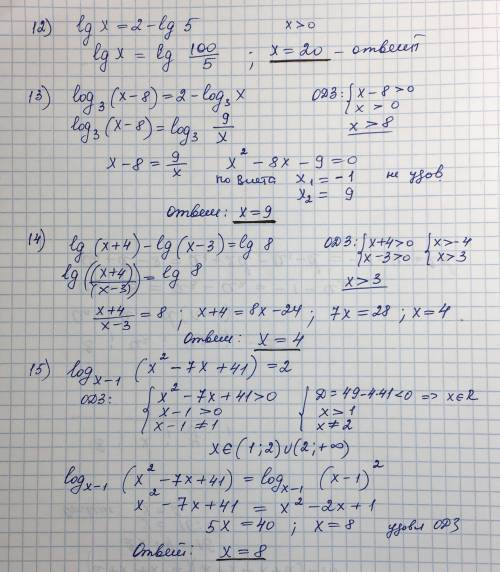 12) lg x = 2 - lg 5 x>0
lg x = lg 100/5 ; x = 20 - ответ
13) log₃(x-8) = 2 - log₃x ОДЗ: { x-8>0
log₃(x-8) = log₃ 9/x x > 0
x>8
x-8 = 9/x x² - 8x - 9 = 0
по Виета x₁ = -1 не удов
x₂ = 9
Ответ: x = 9
14) lg (x+4) - lg (x-3) = lg 8 ОДЗ: { x+4>0 { x>-4
lg((x+4)/(x-3)) = lg 8 x-3>0 x>3
x>3
x+4/x-3 = 8 ; x+4 = 8x-24 ; 7x = 28 ; x = 4.
Ответ: x = 4
15) logₓ₋₁ (x² - 7x + 41) = 2
ОДЗ: { x² - 7x + 41 > 0 { D = 49 - 4·41 < 0 => x∈R
x - 1 > 0 x > 1
x - 1 ≠ 1 x ≠ 2
x∈(1; 2)∪(2; +∞)
logₓ₋₁ (x² - 7x + 41) = logₓ₋₁ (x-1)²
x² - 7x + 41 = x² - 2x + 1
5x = 40 ; x = 8 удовл ОДЗ
Ответ: x = 8